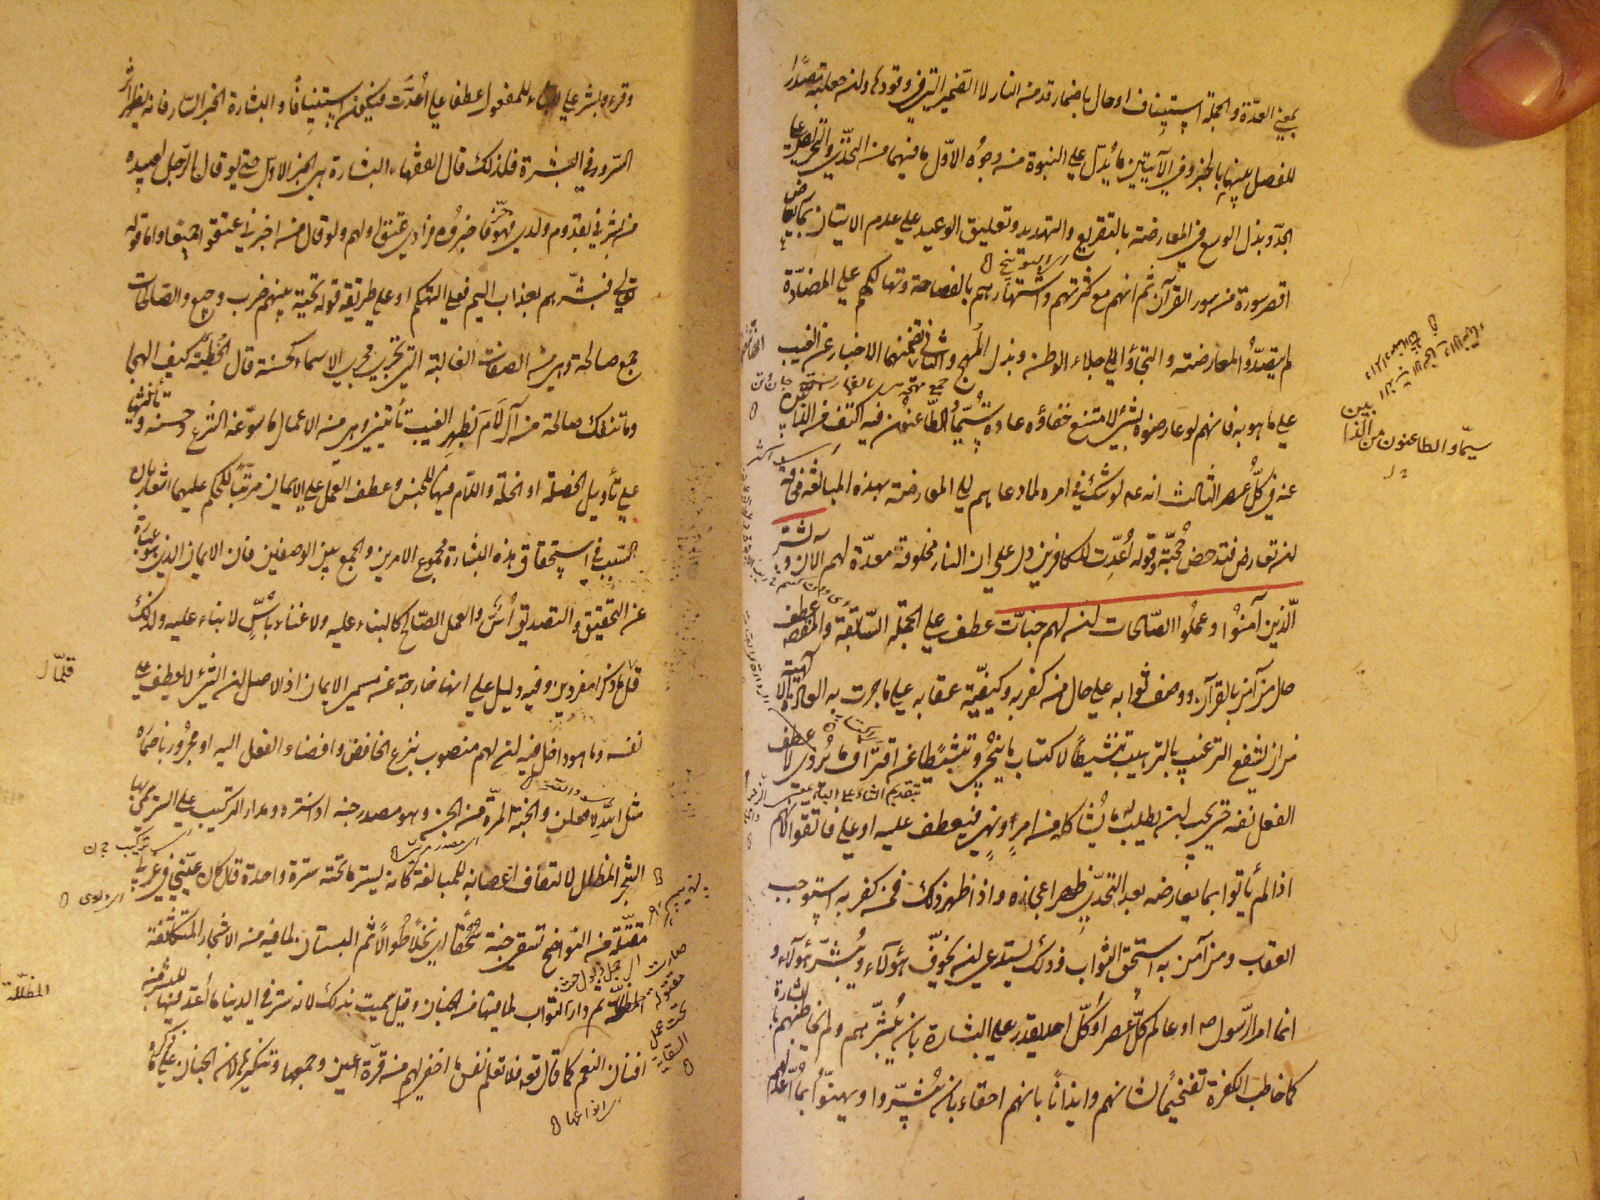 بمعنى العدّة والجملة استيناف او حال باضمار قد من النار لا الضمير الذي في وقودها وان جعلته مصدرًا
للفصل بينهما بالخبر وفي الآيتين ما يدل على النبوة من وجوه الاول ما فيهما من التحدّي والتحريض على
الجدّ وبذل الوسع في المعارضة بالتقريع والتهديد وتعليق الوعيد على عدم الاتيان بما يعارض
اقصر سورة من سور القرآن ثم انهم مع كثرتهم واشتهارهم بالفصاحة وتهالكهم على المضادّة
لم يتصدّوا المعارضته والتجأوا الى جلاء الوطن وبذل المهج والثاني تضمنهما الاخبار عن الغيب
على ما هو به فانهم لو عارضوه بشئ لامتنع خفاؤه عادة سيّما والطاعنون فيه اكثف من الذابين
عنه في كلّ عصر الثالث انه عم لو شك في امره لما دعاهم الى المعارضة بهذه المبالغة مخافة
ان يعارض فتدحض حجّته وقوله أُعدّت للكافرين دل على ان النار مخلوقة معدّة لهم الآن وبشّر
الّذين آمنوا وعملوا الصّالحات انّ لهم جنات عطف على الجملة السابقة والمقصود عطف
حال من آمن بالقرآن ووصف ثوابه على حال من كفر به وكيفيّة عقابه على ما جرت به العادة الالهية
من ان يشفع الترغيب بالترهيب تنشيطًا لاكتساب ما ينجي وتثبيطًا عن اقتراف ما يردي لا عطف
الفعل نفسه حتى يجب ان يطلب له ما يشاكله من امر او نهي فيعطف عليه او على فاتقوا لانهم
اذا لم يأتوا بما يعارضه بعد التحدّي ظهر اعجازه واذا ظهر ذلك فمن كفر به استوجب
العقاب ومن آمن به استحق الثواب وذلك يستدعي ان يخوّف هؤلاء ويبشّر هؤلاء و
انما امر الرّسول صم او عالم كلّ عصر او كلّ احد يقدر على البشارة بان يبشّرهم ولم يخاطبهم بالبشارة
كما خاطب الكفرة تفخيمًا لشانهم وايذانًا بانهم احقاء بان يبشّروا ويهنّؤا بما أعدّ لهم
سيّما والطاعنون من الذابين
وقرء وبشّر على البناء للمفعول عطفا على أُعدّت فيكون استينافًا والبشارة الخبر السّار فانه يظهر اثر
السّرور في البشرة فلذلك قال الفقهاء البشارة هي الخبر الاول حتى لو قال الرّجل لعبيده
من بشّرني بقدوم ولدي فهو حرّ فاخبروه فرادى عتق اولهم ولو قال من اخبرني عتقوا جميعًا واما قوله
تعالى فبشّرهم بعذاب اليم فعلى التهكم او على طريقة قوله تحيّة بينهم ضرب وجيع والصّالحات
جمع صالحة وهي من الصفات الغالبة التي تجري مجرى الاسماء كحسنة قال الحُطيئة كيف الهجا
وما تنفك صالحة من آل لأمٍ بظهر الغيب تأتيني وهي من الاعمال ما سوّغه الشرع وحسّنه وتأنيثها
على تأويل الخصلة او الخلّة واللّام فيها للجنس وعطف العمل على الايمان مرتّبًا للحكم عليهما اشعارا بان
السّبب في استحقاق هذه البشارة مجموع الامرين والجمع بين الوصفين فان الايمان الذي هو عبارة
عن التحقيق والتصديق أُسّ والعمل الصّالح كالبناء عليه ولا غناء بأسّ لا بناء عليه ولذلك
قلّما ذكرا مفردين وفيه دليل على انها خارجة عن مسمى الايمان اذ الاصل ان الشئ لا يعطف على
نفسه وما هو داخل فيه انّ لهم منصوب بنزع الخافض وافضاء الفعل اليه او مجرور باضماره
مثل اللّه لافعلن والجنّة المرّة من الجنّ وهو مصدر جنه اذا ستره ومدار التركيب على الستر سمي بها
الشجر المظلل لالتفاف اغصانه للمبالغة كانه يستر ما تحته سترة واحدة قال كأن عينيّ في غربي
مقتّلة من النواضح تسقي جنة سُحُقا اي نخلًا طوالًا ثم البستان لما فيه من الاشجار المتكاثفة
المظلّة ثم دار الثواب لما فيها من الجنان وقيل سميت بذلك لانه ستر في الدنيا ما أعد فيها للبشر من
افنان النعم كما قال تعالى فلا تعلم نفس ما اخفي لهم من قرّة اعين وجمعها وتنكيرها لان الجنان على ما ذكره
قلّما
المظلّة